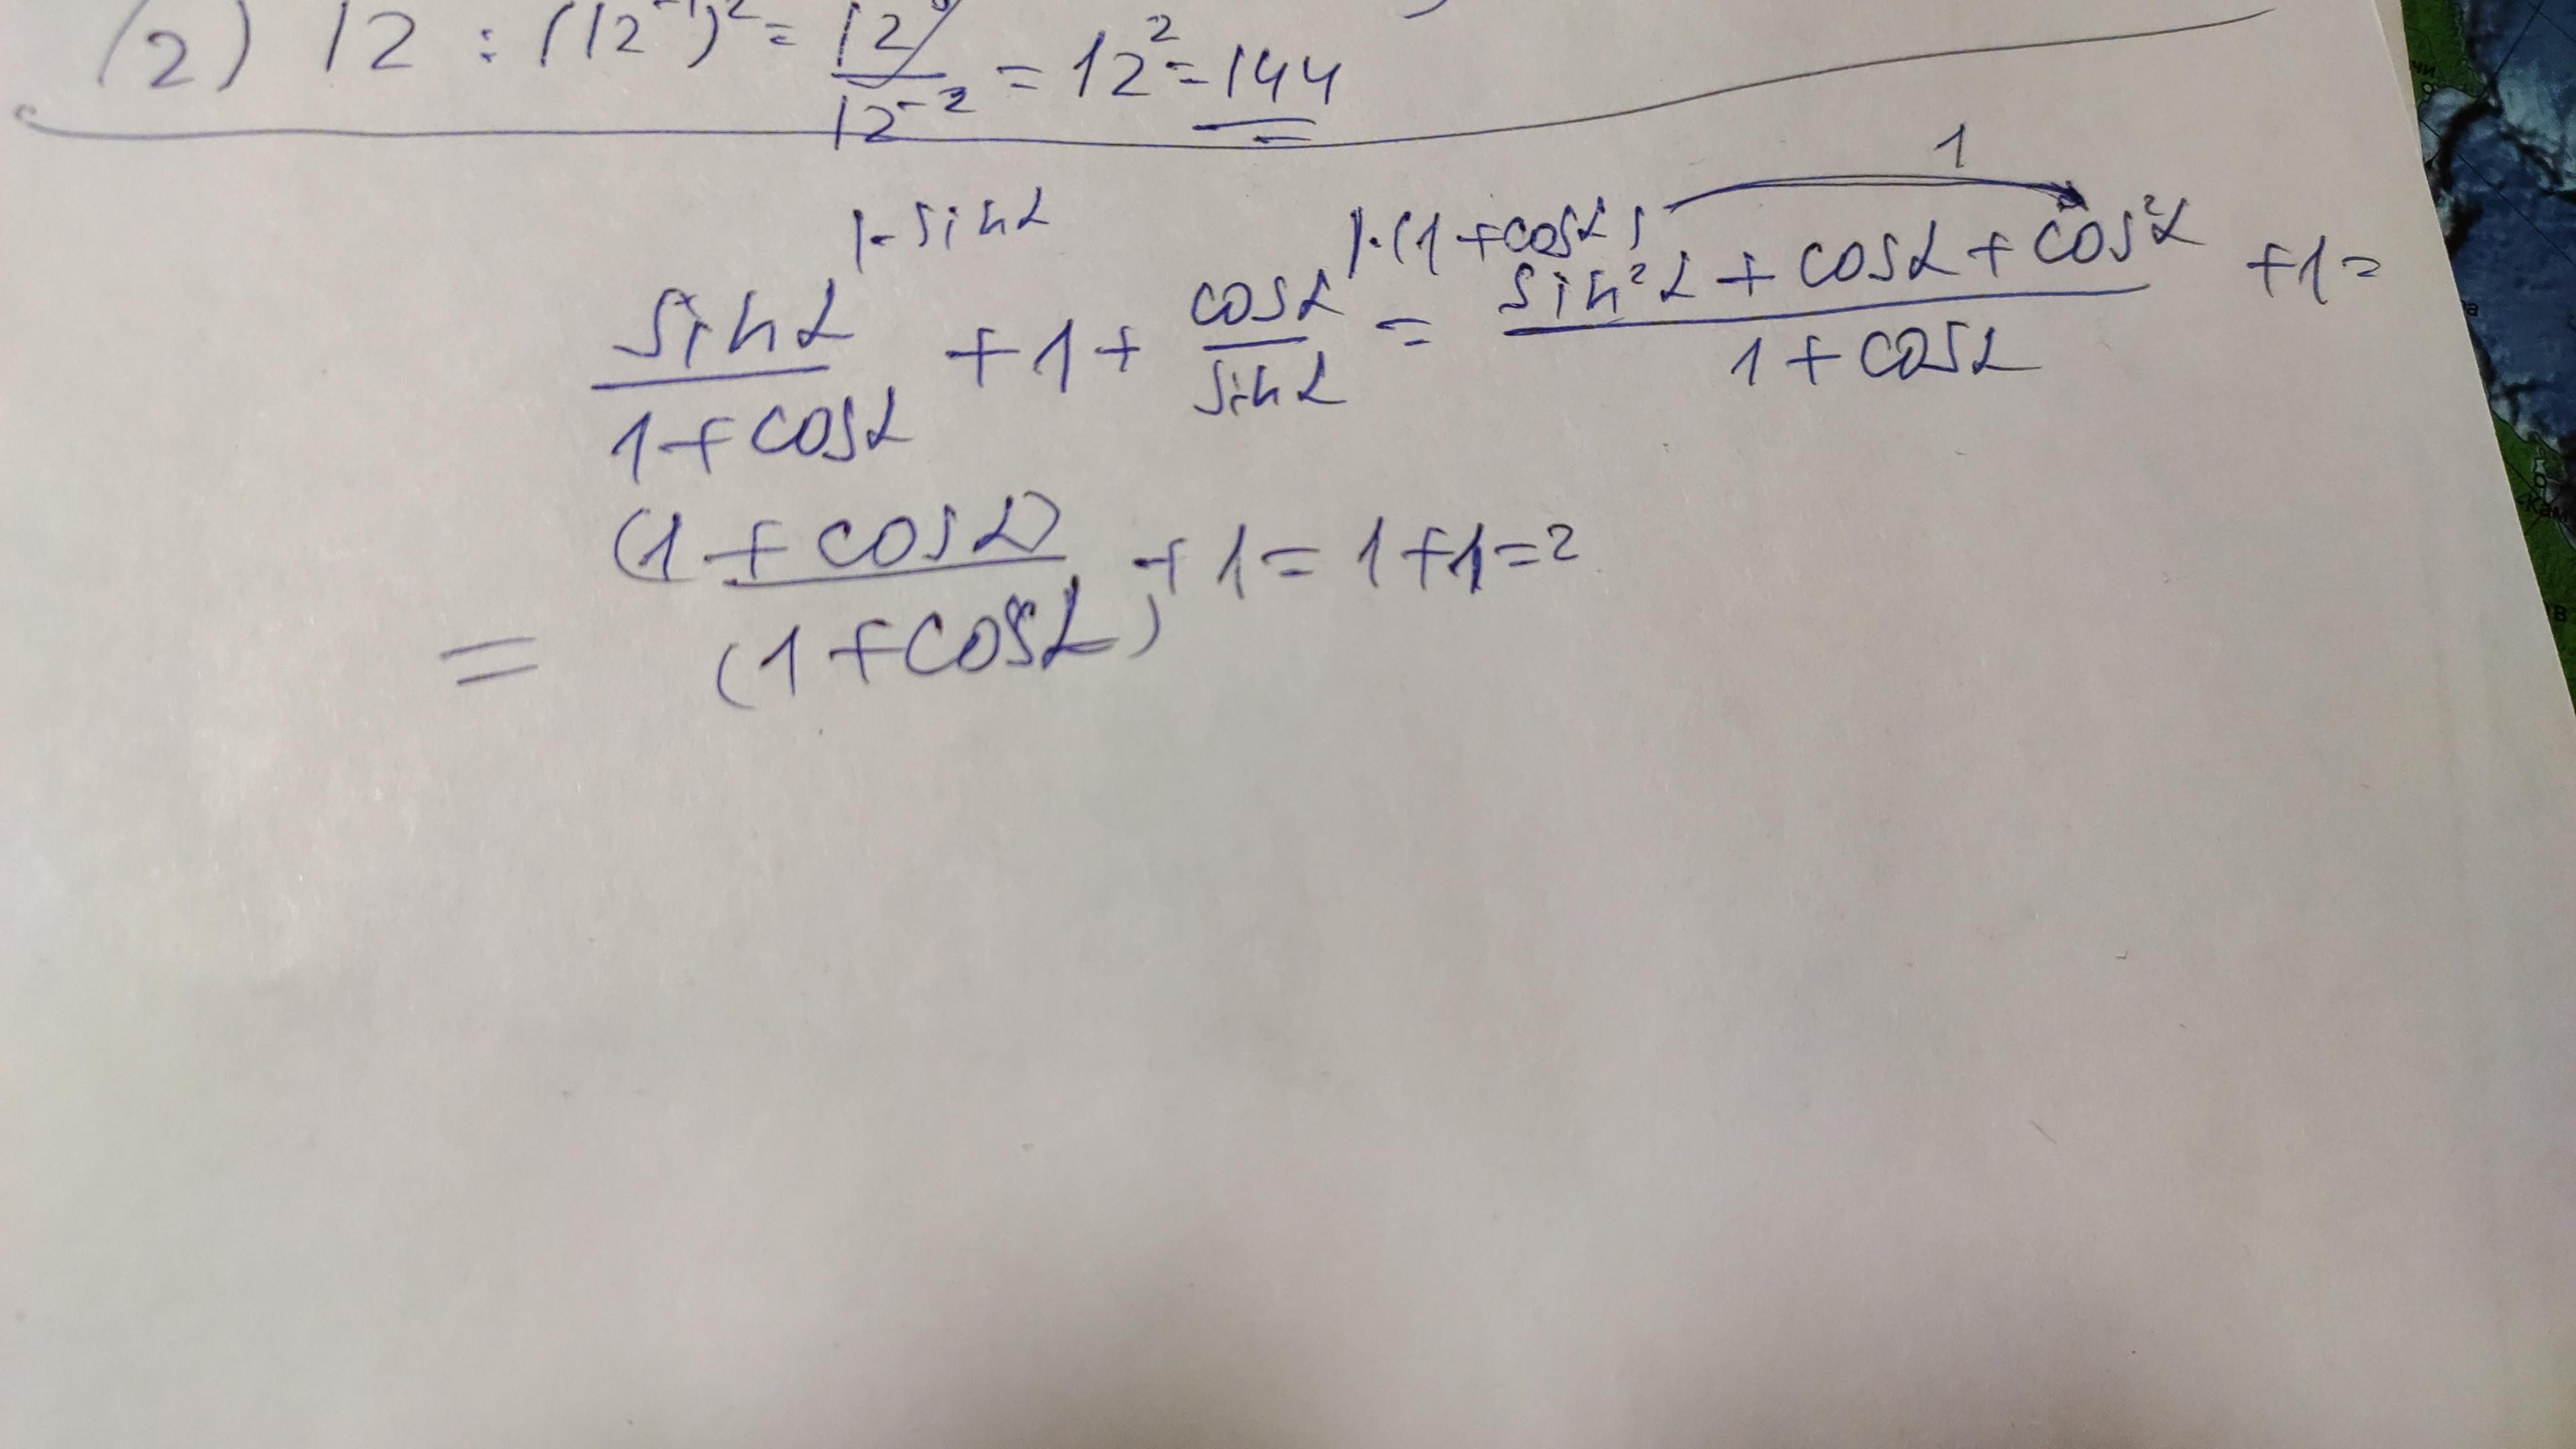 (2) 12 : (12⁻¹)² = 12/12⁻² = 12² = 144
|·sinα |·(1+cosα) 1
sinα/1+cosα + 1 + cosα/sinα = sin²α + cosα + cos²α/1+cosα + 1 =
= (1+cosα)/(1+cosα) + 1 = 1+1 = 2